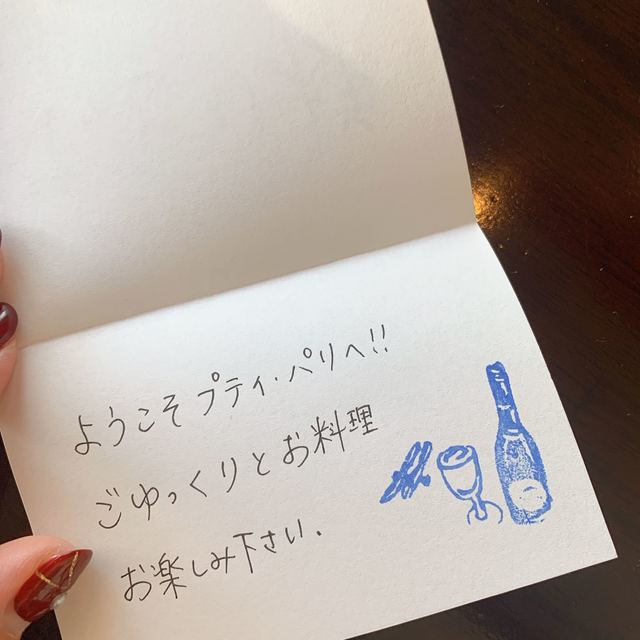 ようこそプティ・パリへ!!
ごゆっくりとお料理
お楽しみ下さい.